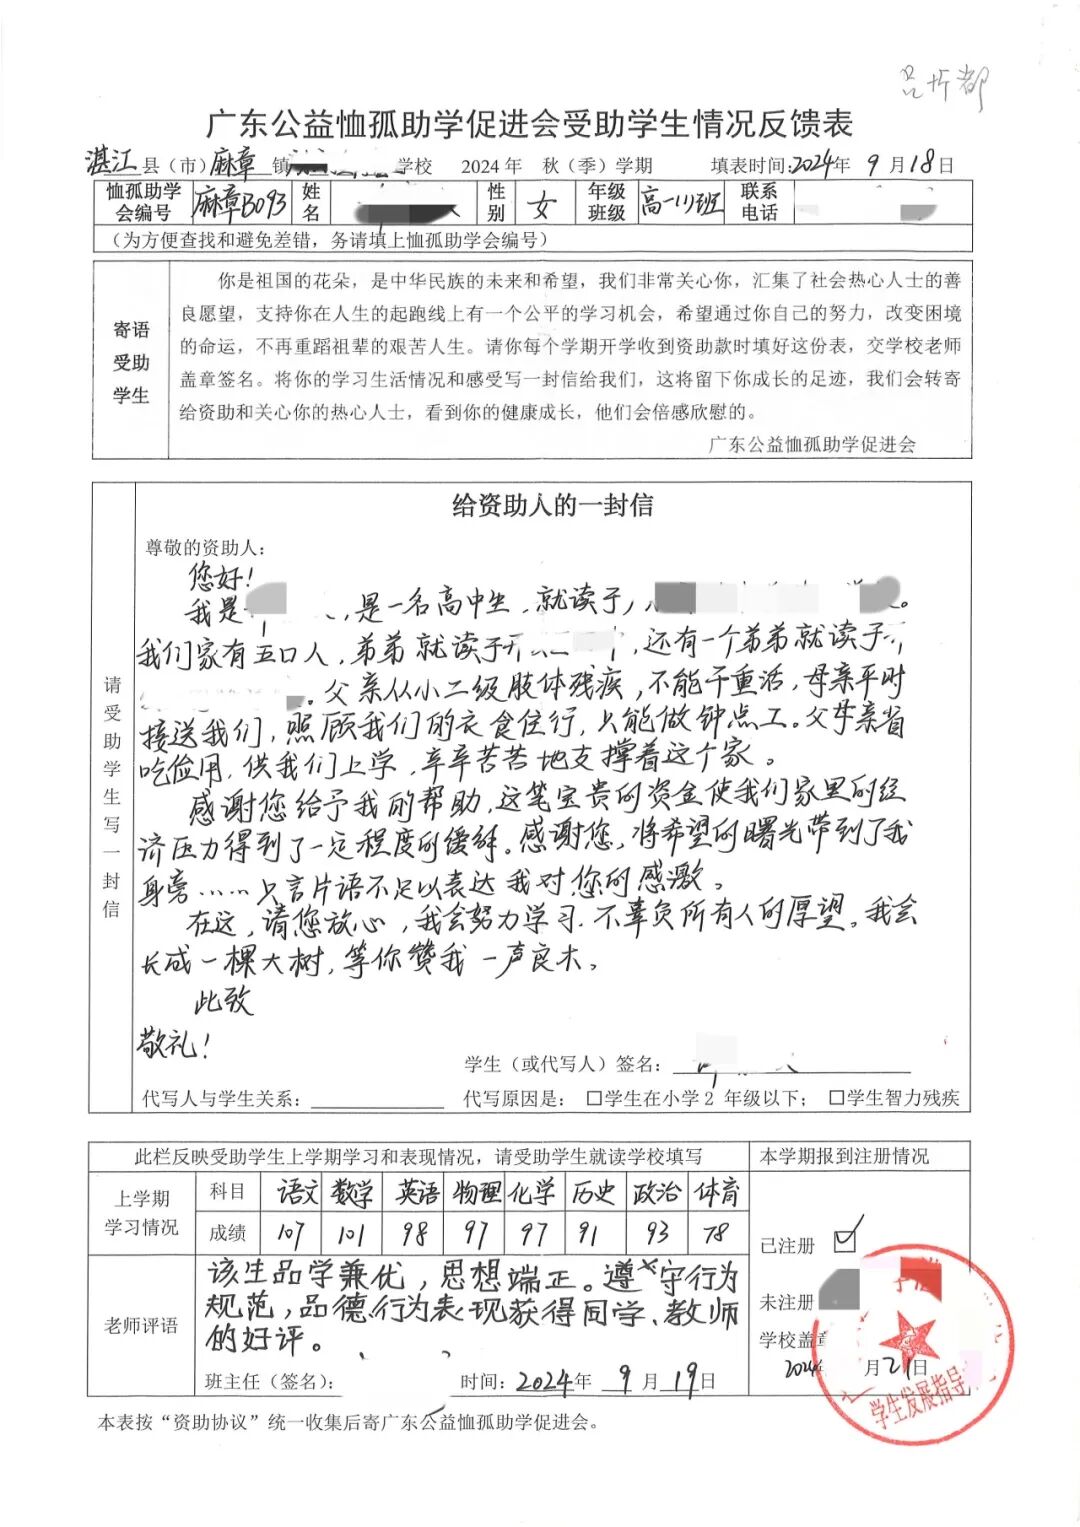 广东公益恤孤助学促进会受助学生情况反馈表
湛江县（市）麻章镇 学校 2024年 秋（季）学期 填表时间：2024年9月18日
恤孤助学会编号 麻章B093 姓名 性别 女 年级班级 高一(1)班 联系电话
（为方便查找和避免差错，务请填上恤孤助学会编号）
寄语受助学生
你是祖国的花朵，是中华民族的未来和希望，我们非常关心你，汇集了社会热心人士的善
良愿望，支持你在人生的起跑线上有一个公平的学习机会，希望通过你自己的努力，改变困境
的命运，不再重蹈祖辈的艰苦人生。请你每个学期开学收到资助款时填好这份表，交学校老师
盖章签名。将你的学习生活情况和感受写一封信给我们，这将留下你成长的足迹，我们会转寄
给资助和关心你的热心人士，看到你的健康成长，他们会倍感欣慰的。
广东公益恤孤助学促进会
请受助学生写一封信
给资助人的一封信
尊敬的资助人：
您好！
我是 ，是一名高中生，就读于 。
我们家有五口人，弟弟就读于 ，还有一个弟弟就读于
。父亲从小二级肢体残疾，不能干重活，母亲平时
接送我们，照顾我们的衣食住行，只能做钟点工。父母亲省
吃俭用，供我们上学，辛辛苦苦地支撑着这个家。
感谢您给予我的帮助，这笔宝贵的资金使我们家里的经
济压力得到了一定程度的缓解。感谢您，将希望的曙光带到了我
身旁……只言片语不足以表达我对您的感激。
在这，请您放心，我会努力学习，不辜负所有人的厚望。我会
长成一棵大树，等你赞我一声良木。
此致
敬礼！
学生（或代写人）签名：
代写人与学生关系： 代写原因是：□学生在小学2年级以下；□学生智力残疾
此栏反映受助学生上学期学习和表现情况，请受助学生就读学校填写 本学期报到注册情况
上学期学习情况 科目 语文 数学 英语 物理 化学 历史 政治 体育
成绩 107 101 98 97 97 91 93 78
已注册 ☑
老师评语
该生品学兼优，思想端正。遵守行为
规范，品德行为表现获得同学、教师
的好评。
未注册
学校盖章
2024 月21日
学生发展指导
班主任（签名）： 时间：2024年9月19日
本表按“资助协议”统一收集后寄广东公益恤孤助学促进会。